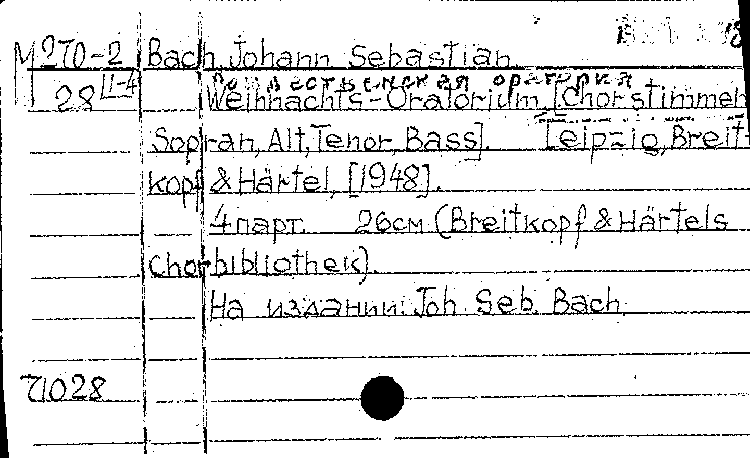 М270-2 Bach, Johann Sebastian
Рождественская оратория
28 II-4 Weihnachts-Oratorium. [Chorstimmen
Sopran, Alt, Tenor, Bass]. Leipzig, Breit-
kopf & Härtel, [1948].
4 парт. 26см (Breitkopf & Härtels
Chorbibliothek).
На издании: Joh. Seb. Bach.
71028